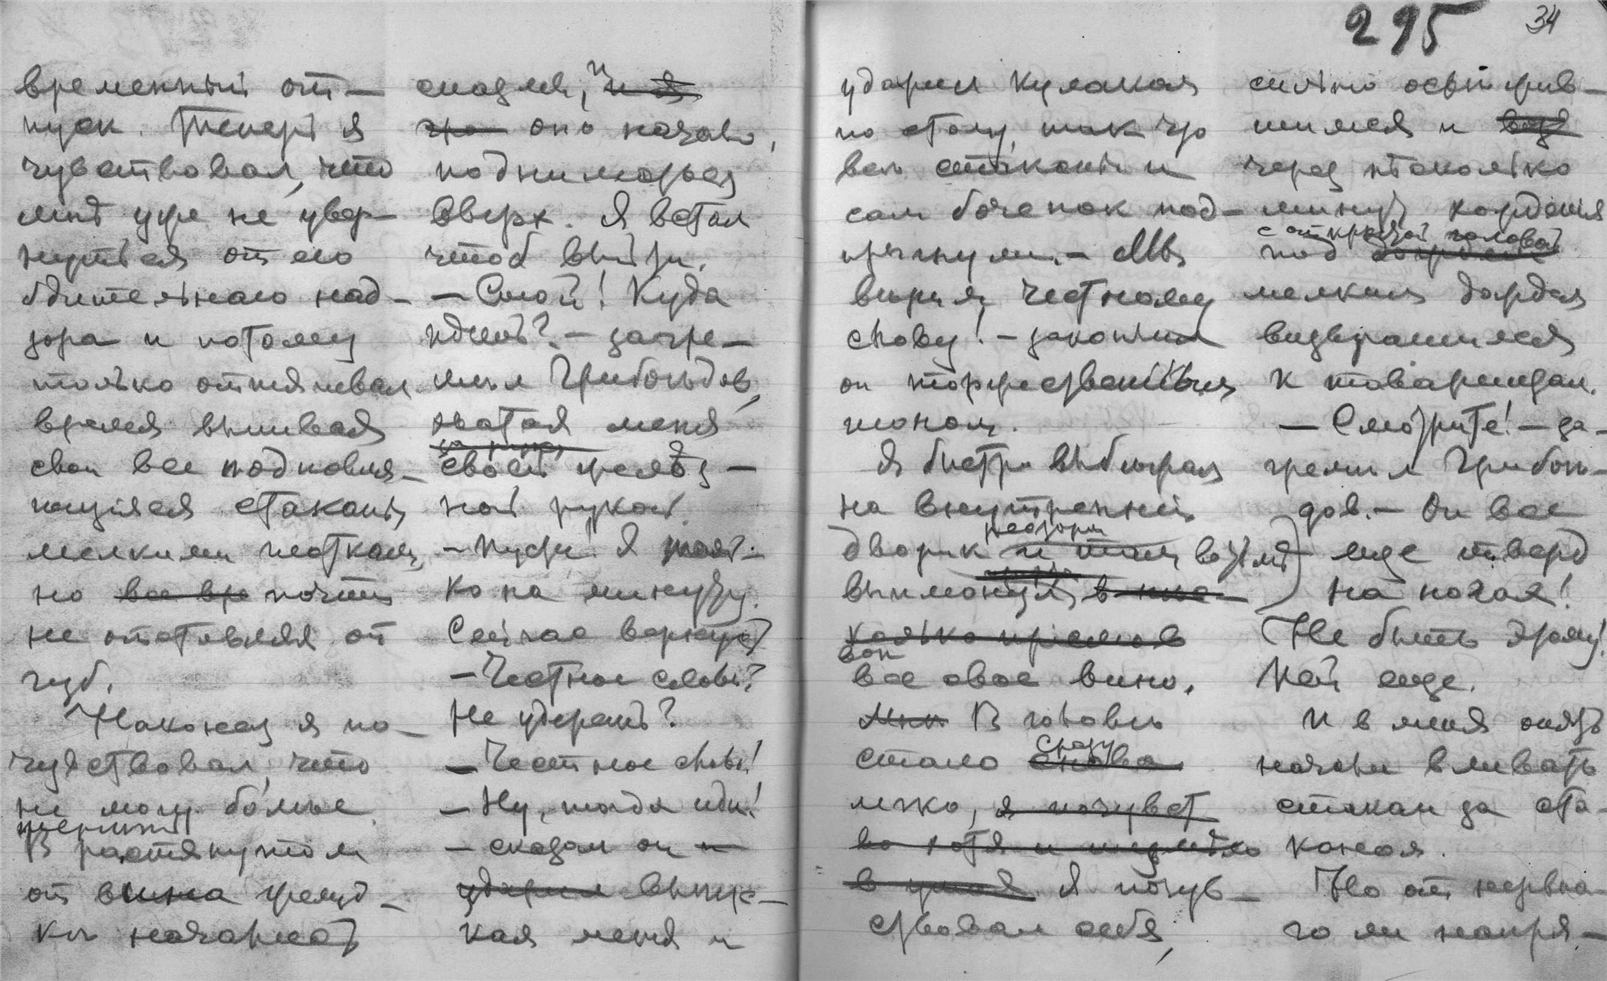 временный от-
пуск. Теперь я
чувствовал, что
мне уже не увер-
нуться от его
бдительнаго над-
зора и потому
только оттягивал
время выпивая
свои все
стаканы
мелкими глотками,
но все вре почти
не отставляя от
губ.
Наконец я по-
чувствовал, что
не могу больше.
В растянутом
от вина желуд-
ке начались
и
оно начало,
подниматься
вверх. Я встал
чтоб выйти.
— Стой! Куда
идешь? — загре-
мел Грибоедов,
хватая меня
своей желез-
ной рукой.
— Пусти! Я толь-
ко на минуту.
Сейчас вернусь
— Честное слово?
Не удерешь?
— Честное слово!
— Ну, тогда иди!
— сказал он и
ударил выпус-
кая меня и
295
34
ударил кулаком
по столу, так что
все стаканы и
сам боченок под-
прыгнули. — Мы
верим честному
слову! — закончил
он торжественным
тоном.
Я быстро выбежал
на внутренний
дворик и там
вон
все свое вино.
Мне В голове
стало сразу снова
легко, я почувст
во хотя и
в ушах Я почув-
ствовал себя,
сильно освежив-
шимся и
через несколько
минут
с открытой головой
под
мелким дождем
возвратился
к товарищам.
— Смотрите! — за-
гремел Грибое-
дов. — Он все
еще тверд
на ногах!
Не быть этому!
Пей еще.
И в меня опять
начали вливать
стакан за ста-
каном.
Но от нервна-
го ли напря-